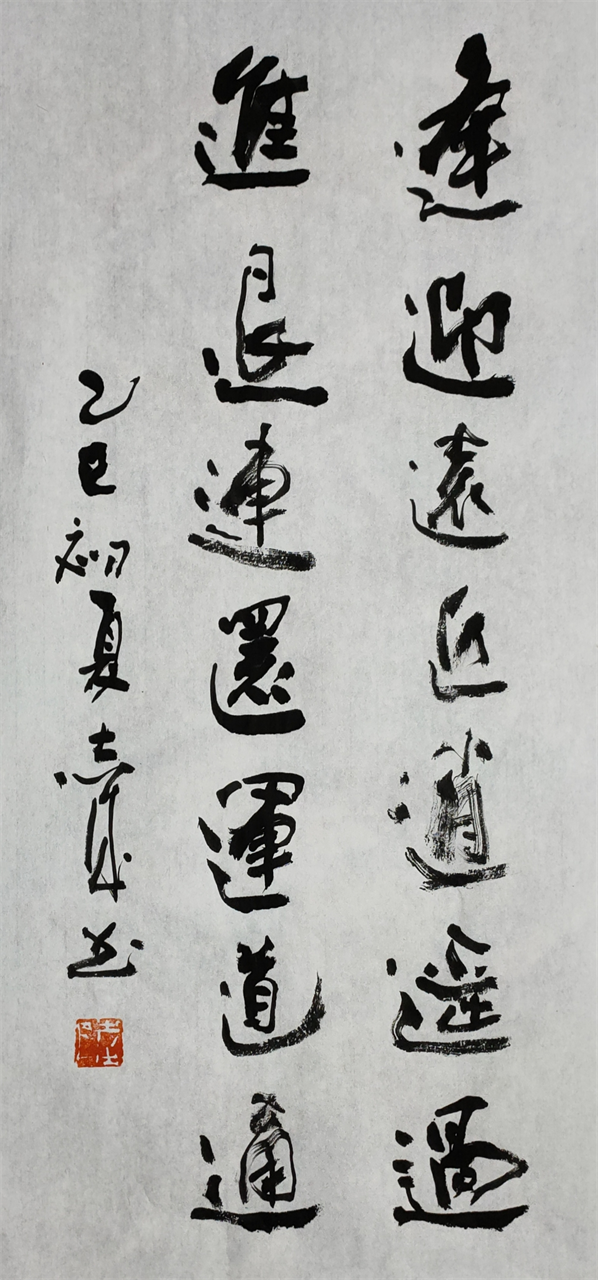 逢迎遠近逍遥過
進退連還運道通
乙巳初夏志成书